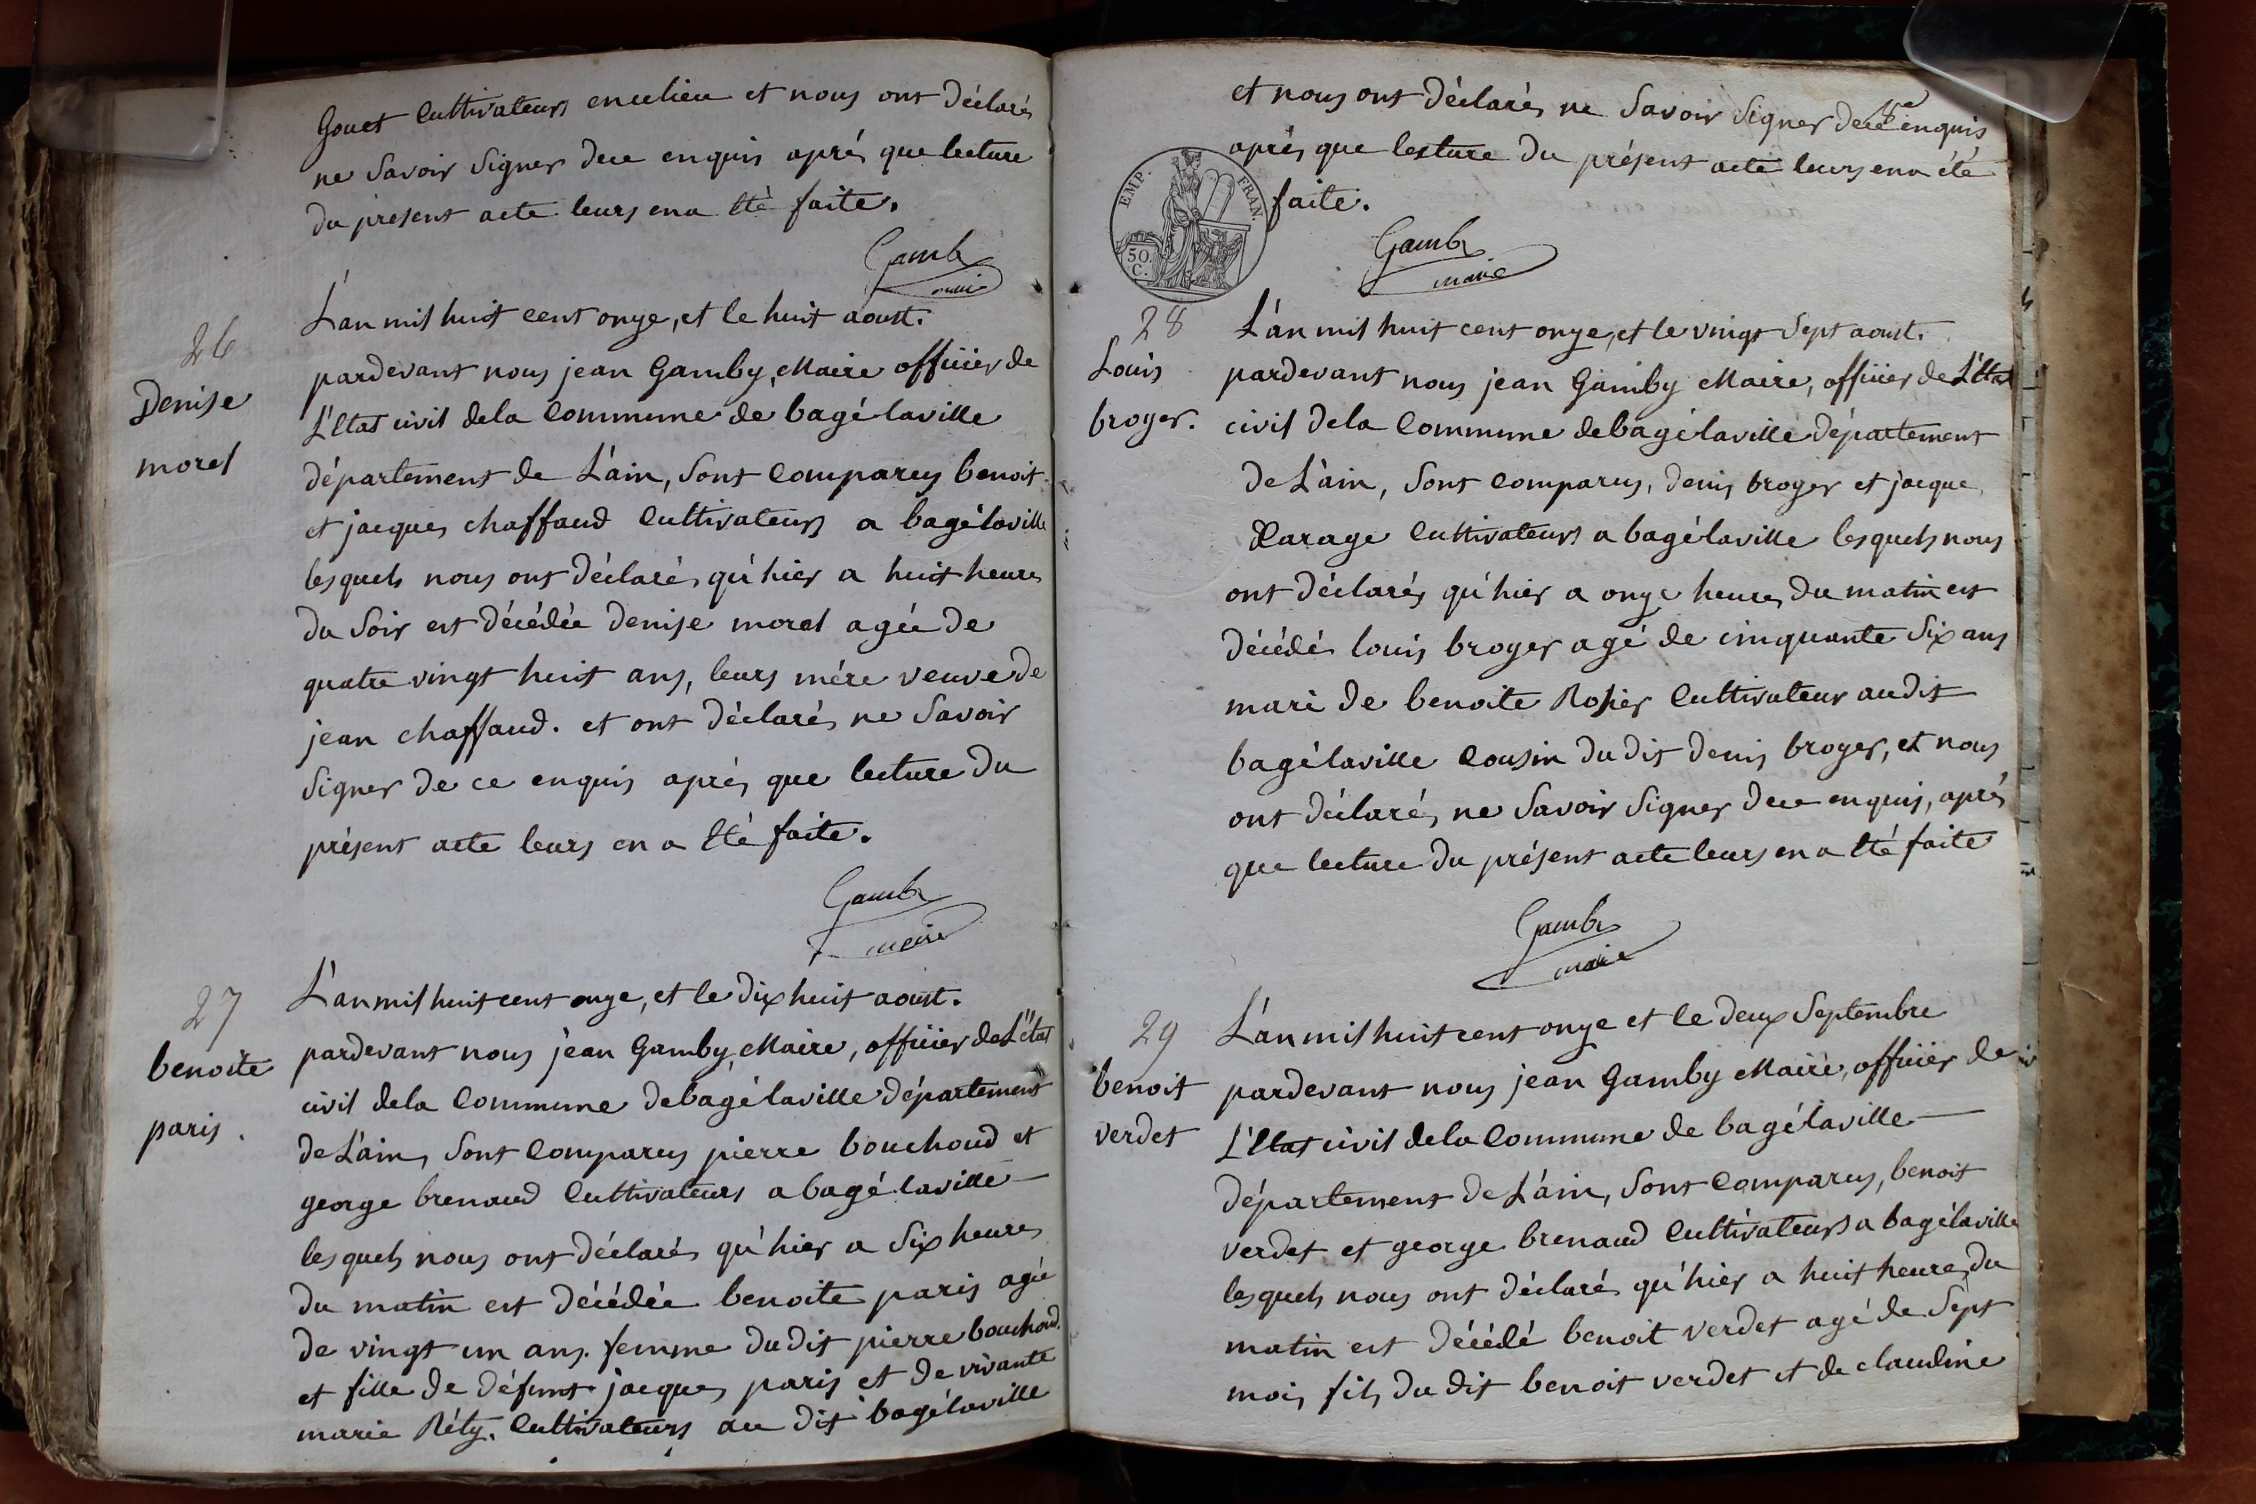 Gouet Cultivateurs en ce lieu et nous ont déclarés
ne Savoir Signer de ce enquis aprés que lecture
du present acte leurs en a Eté faite.
Gamby
maire
26
Denise
morel
L'an mil huit cent onze, et le huit aoust.
pardevant nous jean Gamby, Maire officier de
L'Etat civil de la Commune de bagé laville
département de L'ain, Sont Comparus benoit
et jacques chaffaud Cultivateurs a bagé laville
lesquels nous ont déclarés qu'hier a huit heures
du Soir est décédée denise morel agée de
quatre vingt huit ans, leurs mére veuve de
jean chaffaud. et ont déclarés ne Savoir
Signer de ce enquis aprés que lecture du
présent acte leurs en a Eté faite.
Gamby
maire
27
benoite
paris.
L'an mil huit cent onze, et le dix huit aoust.
pardevant nous jean Gamby, Maire, officier de L'état
civil de la Commune de bagé laville département
de L'ain, Sont Comparus pierre bouchoud et
george brenaud Cultivateurs a bagé laville
lesquels nous ont déclarés qu'hier a Six heures
du matin est décédée benoite paris agée
de vingt un ans. femme du dit pierre bouchoud.
et fille de défunt jacques paris et de vivante
marie Réty. Cultivateurs au dit bagé laville
et nous ont déclarés ne Savoir Signer de ce enquis
aprés que lecture du présent acte leurs en a été
faite.
EMP. FRAN.
50.
C.
Gamby
maire
28
Louis
broyer.
L'an mil huit cent onze, et le vingt Sept aoust.
pardevant nous jean Gamby Maire, officier de L'Etat
civil de la Commune de bagé laville département
de L'ain, Sont Comparus, denis broyer et jacque
Carage Cultivateurs a bagé laville lesquels nous
ont déclarés qu'hier a onze heures du matin est
décédé louis broyer agé de cinquante Six ans
mari de benoite Rosier Cultivateur au dit
bagé laville Cousin du dit denis broyer, et nous
ont déclarés ne Savoir Signer de ce enquis, aprés
que lecture du présent acte leurs en a Eté faite
Gamby
maire
29
benoit
verdet
L'an mil huit cent onze et le deux Septembre
pardevant nous jean Gamby Maire, officier de
L'Etat civil de la Commune de bagé laville
département de L'ain, Sont Comparus, benoit
verdet et george brenaud Cultivateurs a bagé laville
lesquels nous ont déclarés qu'hier a huit heures du
matin est décédé benoit verdet agé de Sept
mois fils du dit benoit verdet et de claudine